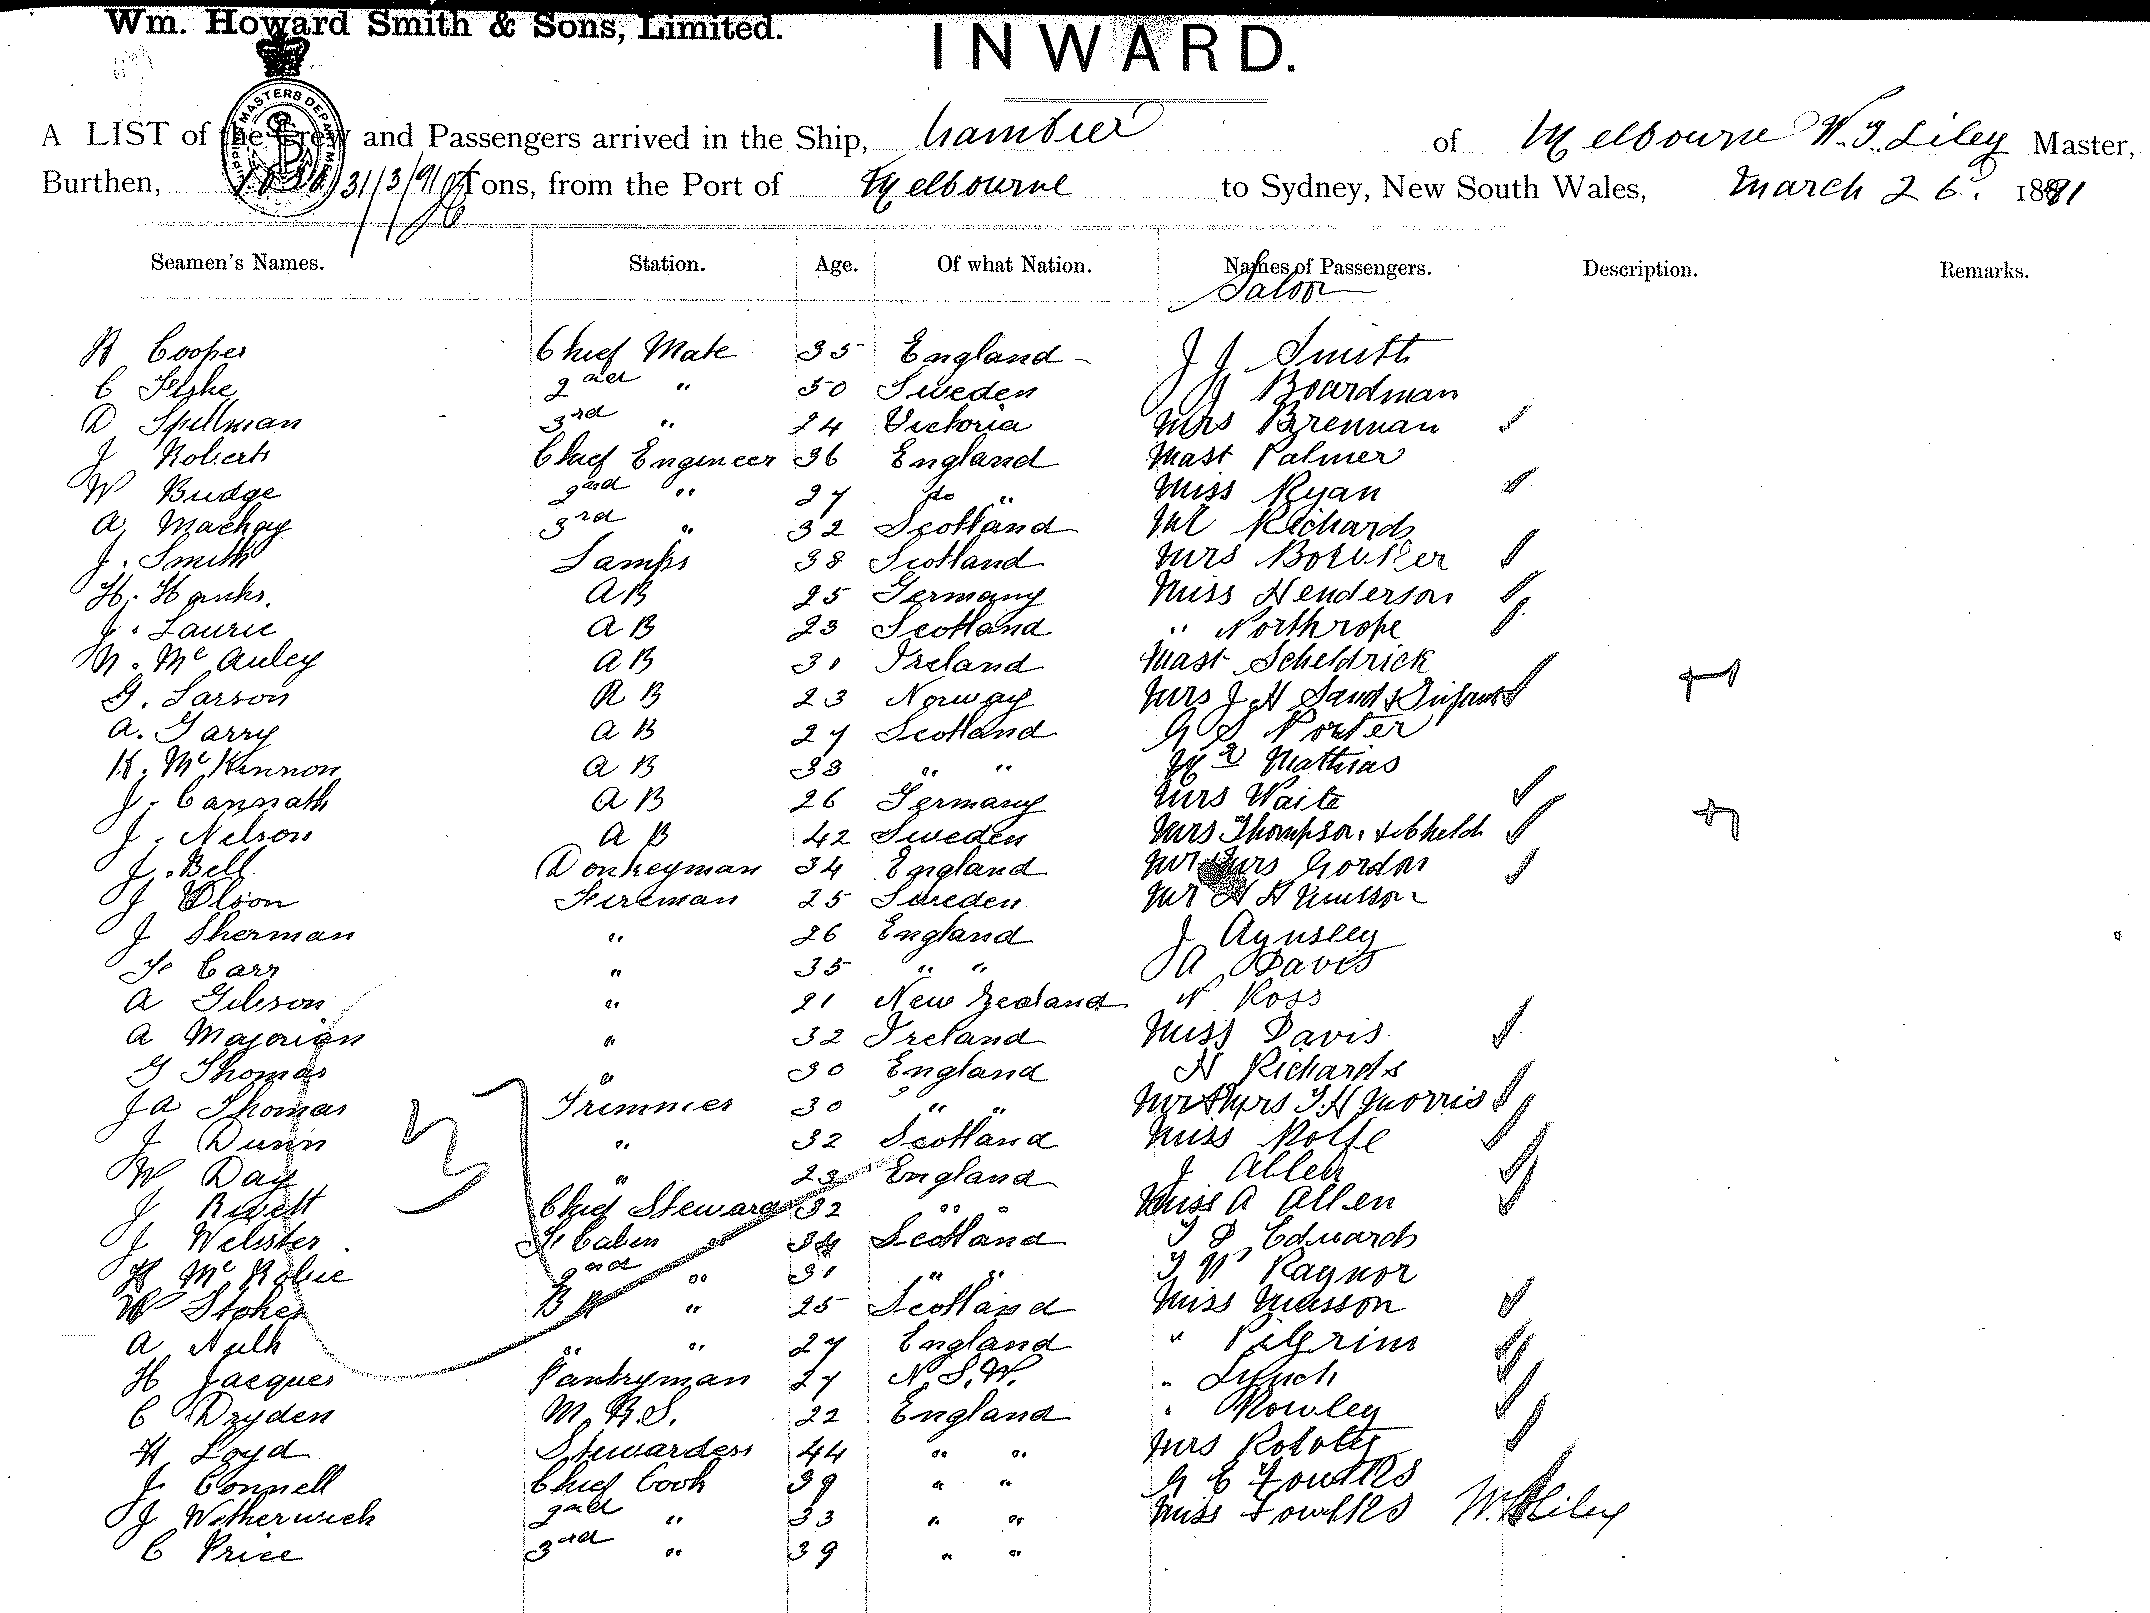 Wm. Howard Smith & Sons, Limited.
INWARD.
A LIST of the Crew and Passengers arrived in the Ship, Gambier of Melbourne W. T. Liley Master,
Burthen, 31/3/91 Tons, from the Port of Melbourne to Sydney, New South Wales, March 26. 1891
Seamen's Names. Station. Age. Of what Nation. Names of Passengers. Description. Remarks.
Saloon
H Cooper Chief Mate 35 England J J Smith
C 2nd " 50 Sweden J Boardman
D Spellman 3rd " 24 Victoria Mrs Brennan
J Roberts Chief Engineer 36 England Mast Palmer
W Budge 2nd " 27 do " Miss Ryan
A Mackay 3rd " 32 Scotland Mr Richards
J. Smith Lamps 38 Scotland Mrs
H. Hanks. AB 25 Germany Miss Henderson
J. Laurie AB 23 Scotland " Northrope
N. McAuley AB 31 Ireland Mast Scheldrick
G. Larson AB 23 Norway Mrs J H Sand & Infant
A. Garry AB 27 Scotland G S Porter
K. McKinnon AB 33 " " Mathias
J. Cannath AB 26 Germany Mrs Waite
J. Nelson AB 42 Sweden Mrs Thompson. & child
J. Bell Donkeyman 34 England Mr Mrs Gordon
J Olson Fireman 25 Sweden Mr H H Musson
J Sherman " 26 England J Aynsley
F Carr " 35 " " A Davis
A Gibson " 21 New Zealand N Ross
A Marorian " 32 Ireland Miss Davis
G Thomas " 30 England H Richards
J A Thomas Trimmer 30 " " Mr & Mrs T. H Morris
J Dunn " 32 Scotland Miss Rolfe
W Day " 23 England J Allen
J Rivett Chief Steward 32 " " Miss A Allen
J Webster F Cabin " 34 Scotland T P Edwards
H McRobie 2nd " 31 " " T W Raynor
W Stokes BR " 25 Scotland Miss Musson
A " " 27 England " Pilgrim
H Jacques Pantryman 27 N.S.W. " Lynch
C Dryden M.R.S. 22 England " Rowley
H Loyd Stewardess 44 " " Mrs
J Connell Chief Cook 39 " " G E Fowlks
J Wotherwick 2nd " 33 " " Miss Fowlks W. T. Liley
C Price 3rd " 39 " "